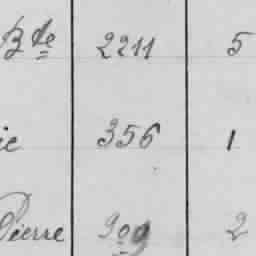 Bte 2211 5
ie 356 1
Pierre 909 2